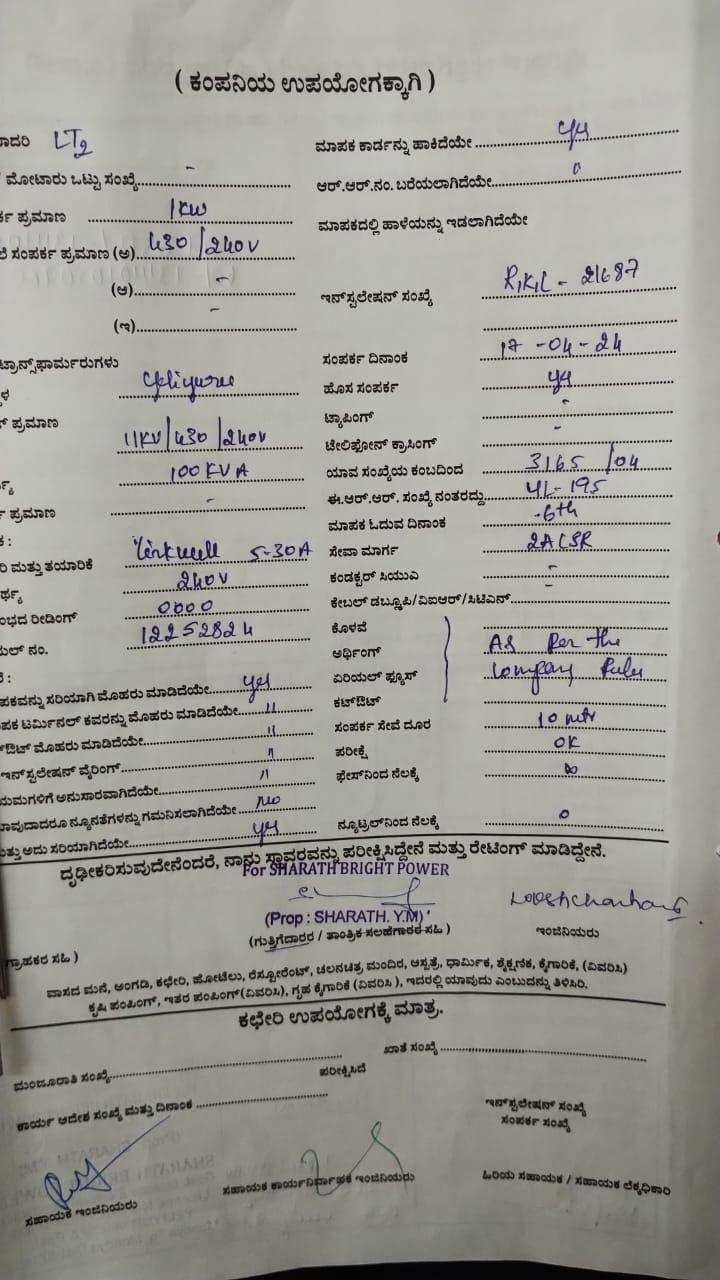 ( ಕಂಪನಿಯ ಉಪಯೋಗಕ್ಕಾಗಿ )
ಾದರಿ LT2
ಮಾಪಕ ಕಾರ್ಡನ್ನು ಹಾಕಿದೆಯೇ
ಮೋಟಾರು ಒಟ್ಟು ಸಂಖ್ಯೆ -
ಆರ್.ಆರ್.ನಂ. ಬರೆಯಲಾಗಿದೆಯೇ
ರ್ಕ ಪ್ರಮಾಣ 1KW
ಮಾಪಕದಲ್ಲಿ ಹಾಳೆಯನ್ನು ಇಡಲಾಗಿದೆಯೇ
ಸಂಪರ್ಕ ಪ್ರಮಾಣ (ಅ) 430/240V
(ಆ) -
ಇನ್‌ಸ್ಟಲೇಷನ್ ಸಂಖ್ಯೆ R,K,L - 21687
(ಇ) -
ಟ್ರಾನ್ಸ್‌ಫಾರ್ಮರುಗಳು
ಸಂಪರ್ಕ ದಿನಾಂಕ 17-04-24
ಳ
ಹೊಸ ಸಂಪರ್ಕ
ಪ್ರಮಾಣ 11KV/430/240V
ಟ್ಯಾಪಿಂಗ್ -
ಟೆಲಿಫೋನ್ ಕ್ರಾಸಿಂಗ್ -
100KVA
ಯಾವ ಸಂಖ್ಯೆಯ ಕಂಬದಿಂದ 3165/04
ಪ್ರಮಾಣ -
ಈ.ಆರ್.ಆರ್. ಸಂಖ್ಯೆ ನಂತರದ್ದು 4L-195
ಮಾಪಕ ಓದುವ ದಿನಾಂಕ 6th
ರಿ ಮತ್ತು ತಯಾರಿಕೆ Linkwell 5-30A
ಸೇವಾ ಮಾರ್ಗ 2ACSR
ರ್ಥ್ಯ 240V
ಕಂಡಕ್ಟರ್ ಸಿಯುಎ -
ಂಭದ ರೀಡಿಂಗ್ 0000
ಕೇಬಲ್ ಡಬ್ಲ್ಯೂಪಿ/ವಿಐಆರ್/ಸಿಟಿಎನ್ -
ಯಲ್ ನಂ. 12252824
ಕೊಳವೆ
ಅರ್ಥಿಂಗ್ As Per the
ಪಕವನ್ನು ಸರಿಯಾಗಿ ಮೊಹರು ಮಾಡಿದೆಯೇ yes
ಏರಿಯಲ್ ಫ್ಯೂಸ್ Company Rules
ಪಕ ಟರ್ಮಿನಲ್ ಕವರನ್ನು ಮೊಹರು ಮಾಡಿದೆಯೇ 11
ಕಟ್‌ಔಟ್
ಔಟ್ ಮೊಹರು ಮಾಡಿದೆಯೇ 11
ಸಂಪರ್ಕ ಸೇವೆ ದೂರ 10 mtr
ಇನ್‌ಸ್ಟಲೇಷನ್ ವೈರಿಂಗ್ 11
ಪರೀಕ್ಷೆ OK
ಯಮಗಳಿಗೆ ಅನುಸಾರವಾಗಿದೆಯೇ 11
ಫೇಸ್‌ನಿಂದ ನೆಲಕ್ಕೆ ∞
ಾವುದಾದರೂ ನ್ಯೂನತೆಗಳನ್ನು ಗಮನಿಸಲಾಗಿದೆಯೇ no
ತ್ತು ಅದು ಸರಿಯಾಗಿದೆಯೇ yes
ನ್ಯೂಟ್ರಲ್‌ನಿಂದ ನೆಲಕ್ಕೆ 0
ದೃಢೀಕರಿಸುವುದೇನೆಂದರೆ, ನಾನು ಸ್ಥಾವರವನ್ನು ಪರೀಕ್ಷಿಸಿದ್ದೇನೆ ಮತ್ತು ರೇಟಿಂಗ್ ಮಾಡಿದ್ದೇನೆ.
For SHARATH BRIGHT POWER
(Prop : SHARATH. Y.M)
(ಗುತ್ತಿಗೆದಾರರ / ತಾಂತ್ರಿಕ ಸಲಹೆಗಾರರ ಸಹಿ )
ಇಂಜಿನಿಯರು
ಗ್ರಾಹಕರ ಸಹಿ )
ವಾಸದ ಮನೆ, ಅಂಗಡಿ, ಕಛೇರಿ, ಹೋಟೆಲು, ರೆಸ್ಟೋರೆಂಟ್, ಚಲನಚಿತ್ರ ಮಂದಿರ, ಆಸ್ಪತ್ರೆ, ಧಾರ್ಮಿಕ, ಶೈಕ್ಷಣಿಕ, ಕೈಗಾರಿಕೆ, (ವಿವರಿಸಿ)
ಕೃಷಿ ಪಂಪಿಂಗ್, ಇತರ ಪಂಪಿಂಗ್(ವಿವರಿಸಿ), ಗೃಹ ಕೈಗಾರಿಕೆ (ವಿವರಿಸಿ ), ಇದರಲ್ಲಿ ಯಾವುದು ಎಂಬುದನ್ನು ತಿಳಿಸಿರಿ.
ಕಛೇರಿ ಉಪಯೋಗಕ್ಕೆ ಮಾತ್ರ.
ಮಂಜೂರಾತಿ ಸಂಖ್ಯೆ
ಖಾತೆ ಸಂಖ್ಯೆ
ಪರೀಕ್ಷಿಸಿದೆ
ಕಾರ್ಯ ಆದೇಶ ಸಂಖ್ಯೆ ಮತ್ತು ದಿನಾಂಕ
ಇನ್‌ಸ್ಟಲೇಷನ್ ಸಂಖ್ಯೆ
ಸಂಪರ್ಕ ಸಂಖ್ಯೆ
ಸಹಾಯಕ ಇಂಜಿನಿಯರು
ಸಹಾಯಕ ಕಾರ್ಯನಿರ್ವಾಹಕ ಇಂಜಿನಿಯರು
ಹಿರಿಯ ಸಹಾಯಕ / ಸಹಾಯಕ ಲೆಕ್ಕಧಿಕಾರಿ